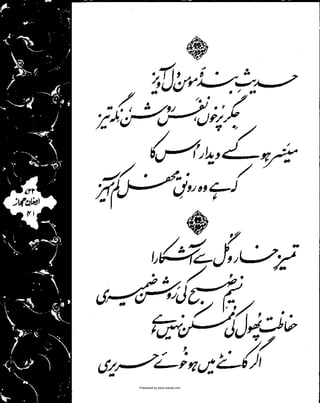 حدیثِ بندۂ مومن دل آویز
جگر پُرخوں، نفس روشن، نِگہ تیز
میسّر ہو کسے دیدار اُس کا
کہ ہے وہ رونقِ محفل کم آمیز
تمیزِ خار و گُل سے آشکارا
نسیمِ صُبح کی روشن ضمیری
حفاظت پھُول کی ممکن نہیں ہے
اگر کانٹے میں ہو خُوئے حریری
ارمغانِ حجاز
۴۱
Presented by www.iqbalmir.com